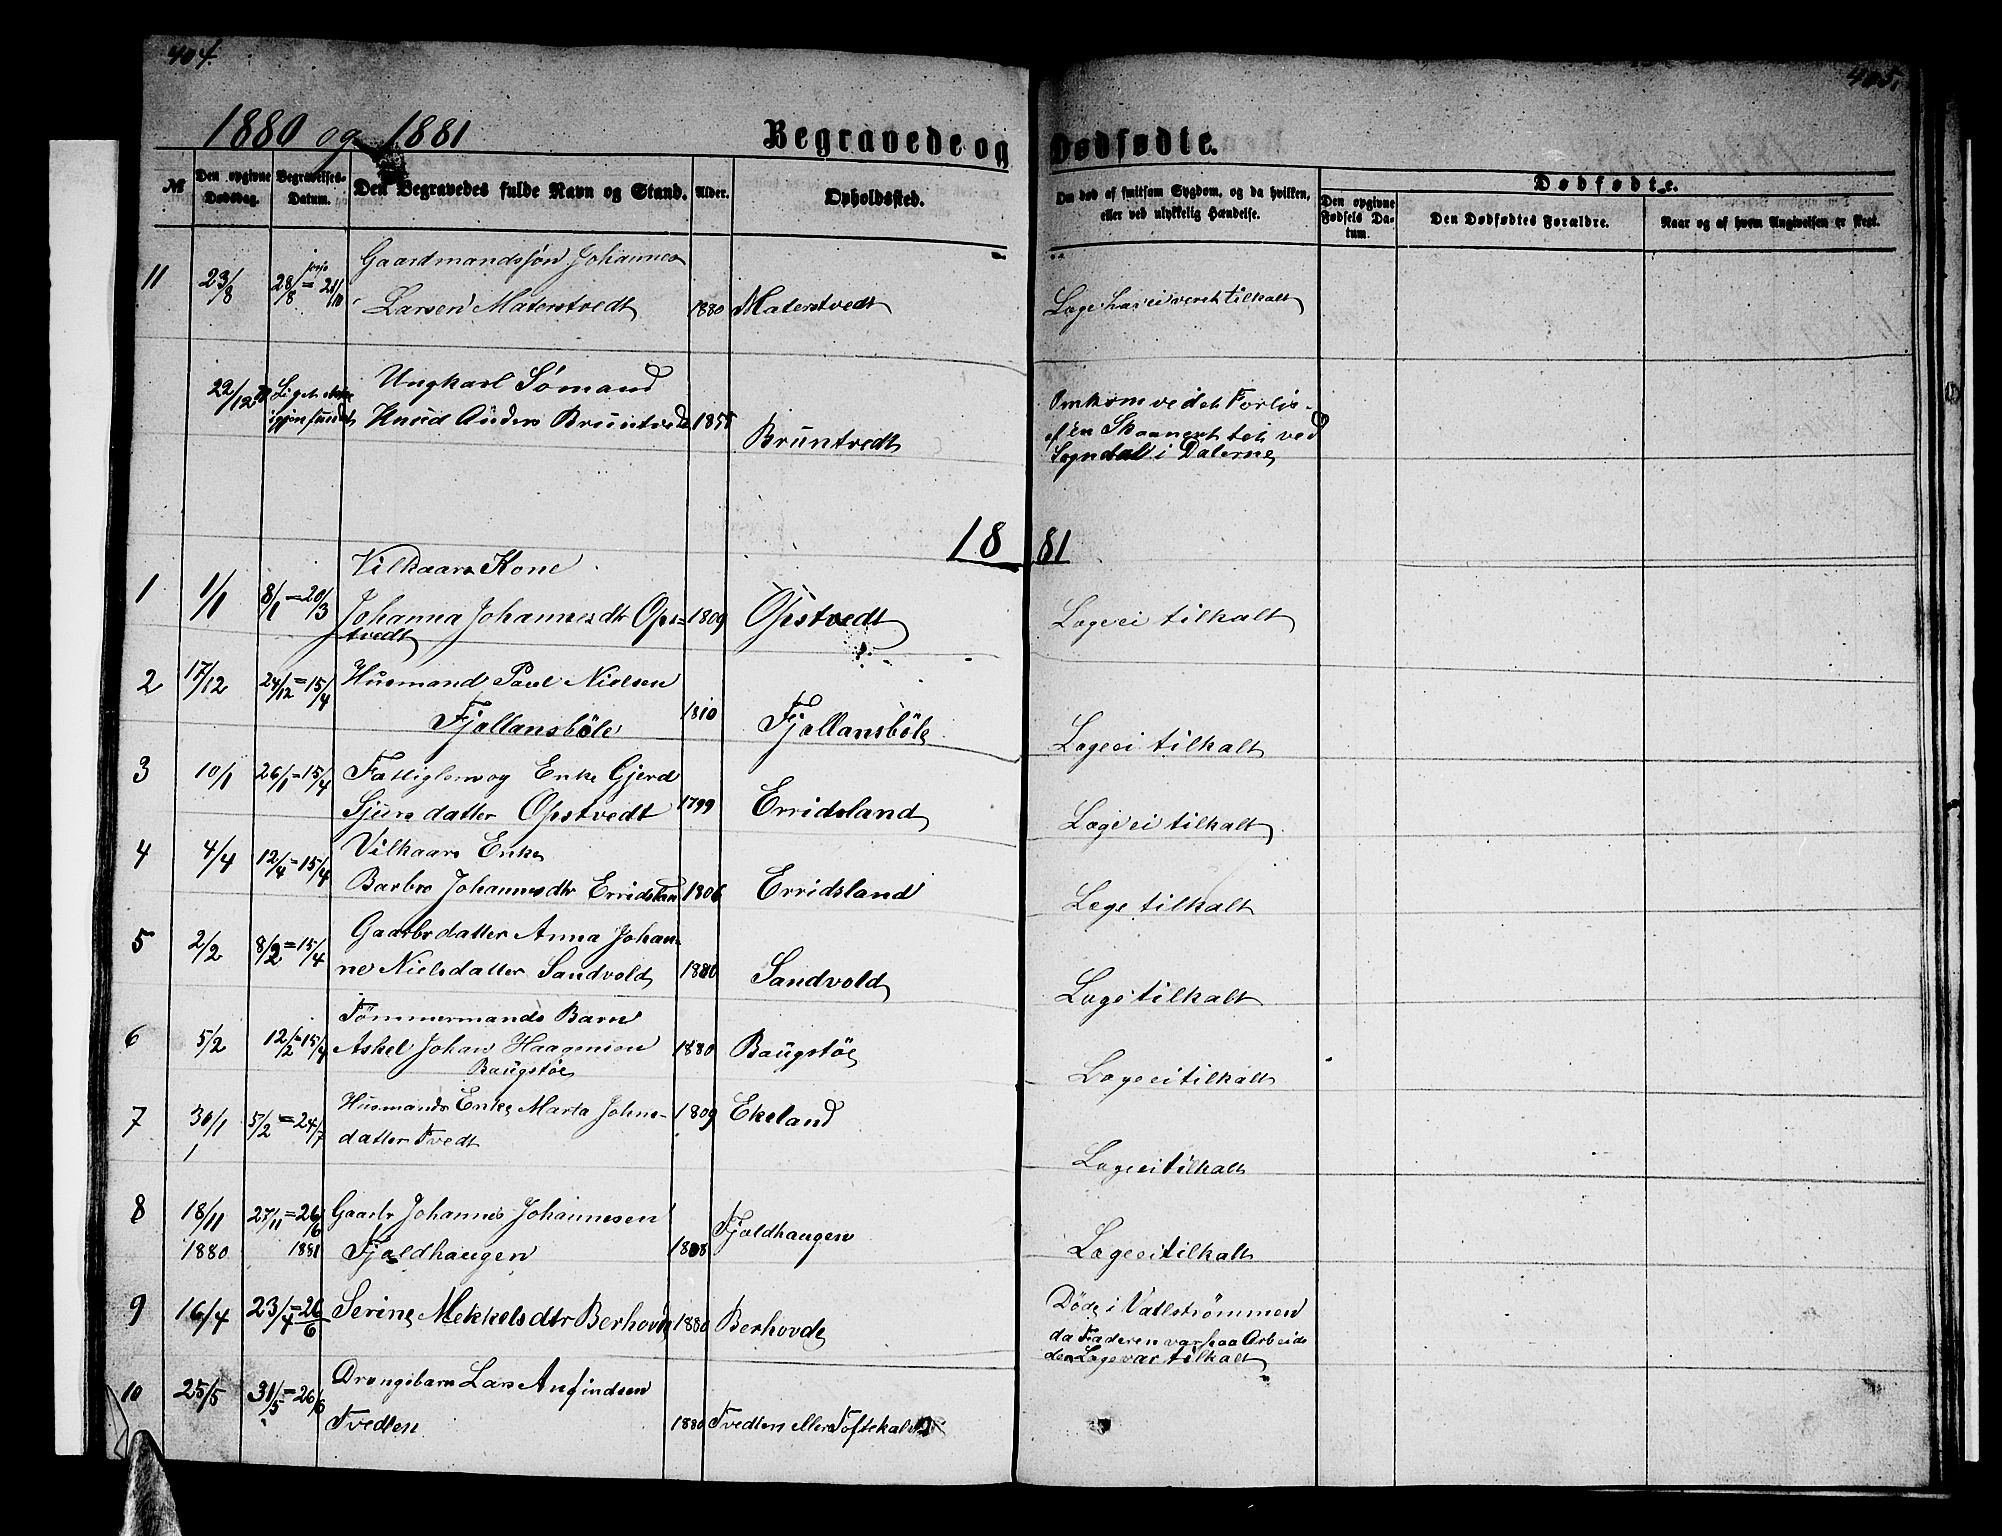 404.
405.
1880 og 1881
Begravede og Dødfødte.
№
Den opgivne Dødsdag.
Begravelses-Datum.
Den Begravedes fulde Navn og Stand.
Alder.
Opholdssted.
Om død af smitsom Sygdom, og da hvilken, eller ved ulykkelig Hændelse.
Dødfødte.
Den opgivne Fødsels Datum.
Den Dødfødtes Forældre.
Naar og af hvem Angivelsen er skeet.
11 23/8 28/8 = 21/10 Gaardmandssøn Johannes
Larsen Materstvedt 1880 Materstvedt Læge har ei veret tilkalt
22/12 Liget ikke Ungkarl Sømand
igjenfundet Knud Anders Bruntvedt 1855 Bruntvedt
Omkom ved et Forlis
af en Skonnert tet ved
Sogndal i Dalerne
1881
1 1/1 8/1 = 20/3 Vilkaars Kone
Johanna Johannesdtr Ops= 1809 Opstvedt Læge ei tilkalt
tvedt
2 17/12 24/12 = 15/4 Husmand Paul Nielsen
Fjellansbøle 1810 Fjellansbøle Læge ei tilkalt
3 10/1 26/1 = 15/4 Fattiglem og Enke Gjerd
Sjursdatter Opstvedt 1799 Erridsland Læge ei tilkalt
4 4/4 12/4 = 15/4 Vilkaars Enke
Barbro Johannesdtr Erridsland 1806 Erridsland Læge tilkalt
5 2/2 8/2 = 15/4 Gaardbrdatter Anna Johan=
ne Nielsdatter Sandvold 1880 Sandvold Læge tilkalt
6 5/2 12/2 = 15/4 Tømmermands Barn
Askel Johan Haagensen 1880 Baugstøe Læge ei tilkalt
Baugstøe
7 30/1 5/2 = 24/7 Husmands Enke Marta Johns= 1809 Ekeland
datter Tvedt Læge ei tilkalt
8 18/11 27/11 = 26/6 Gaarbr Johannes Johannesen
1880 1881 Fjeldhaugen 1808 Fjeldhaugen Læge ei tilkalt
9 16/4 23/4 = 26/6 Serine Mekkelsdtr Berhovde 1880 Berhovde
Døde i Vatlstrømmen
da Faderen var paa Arbeide
den Læge var tilkalt
10 25/5 31/5 = 26/6 Drengebarn Lars Anfindsen
Tvedten 1880 Tvedten eller Toftekalet